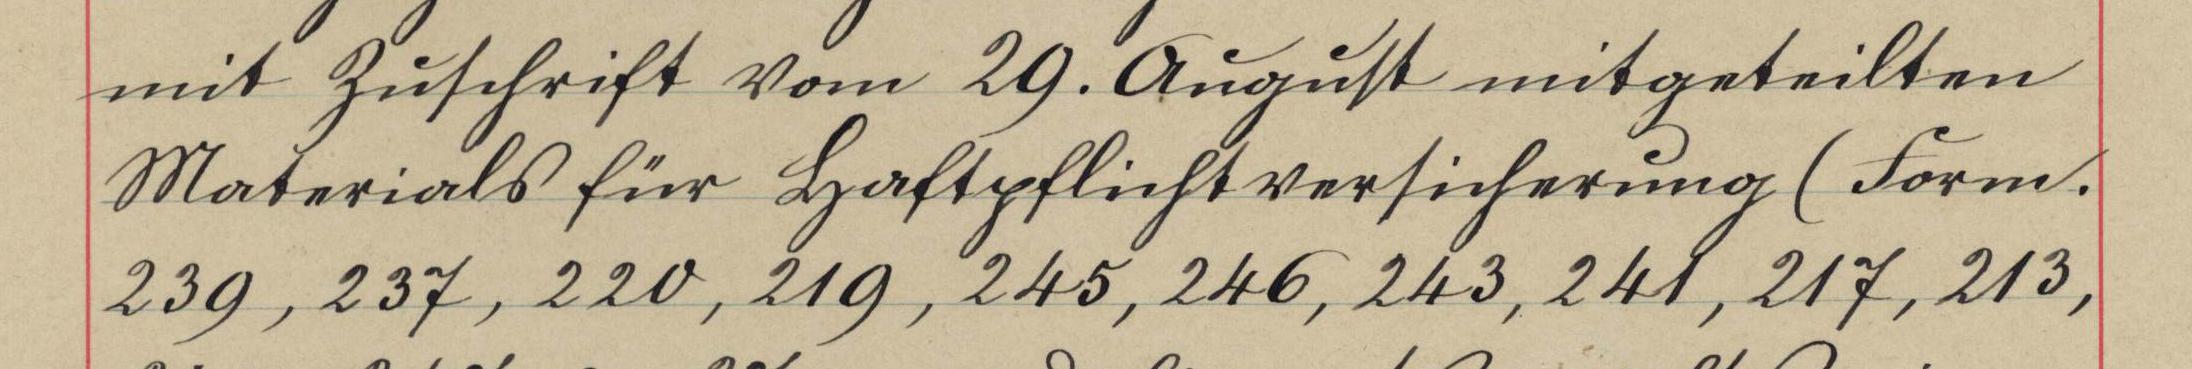 mit Zuschrift vom 29. August mitgeteilten
Materials für Haftpflichtversicherung (Form.
239, 237, 220, 219, 245, 246, 243, 241, 217, 213,